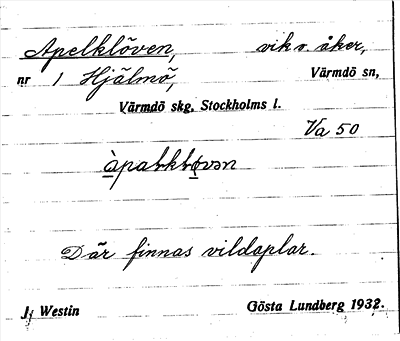 Apelklöven, vik o. åker,
nr 1 Hjälmö, Värmdö sn,
Värmdö skg. Stockholms l.
Va 50
Där finnas vildaplar.
J. Westin Gösta Lundberg 1932.